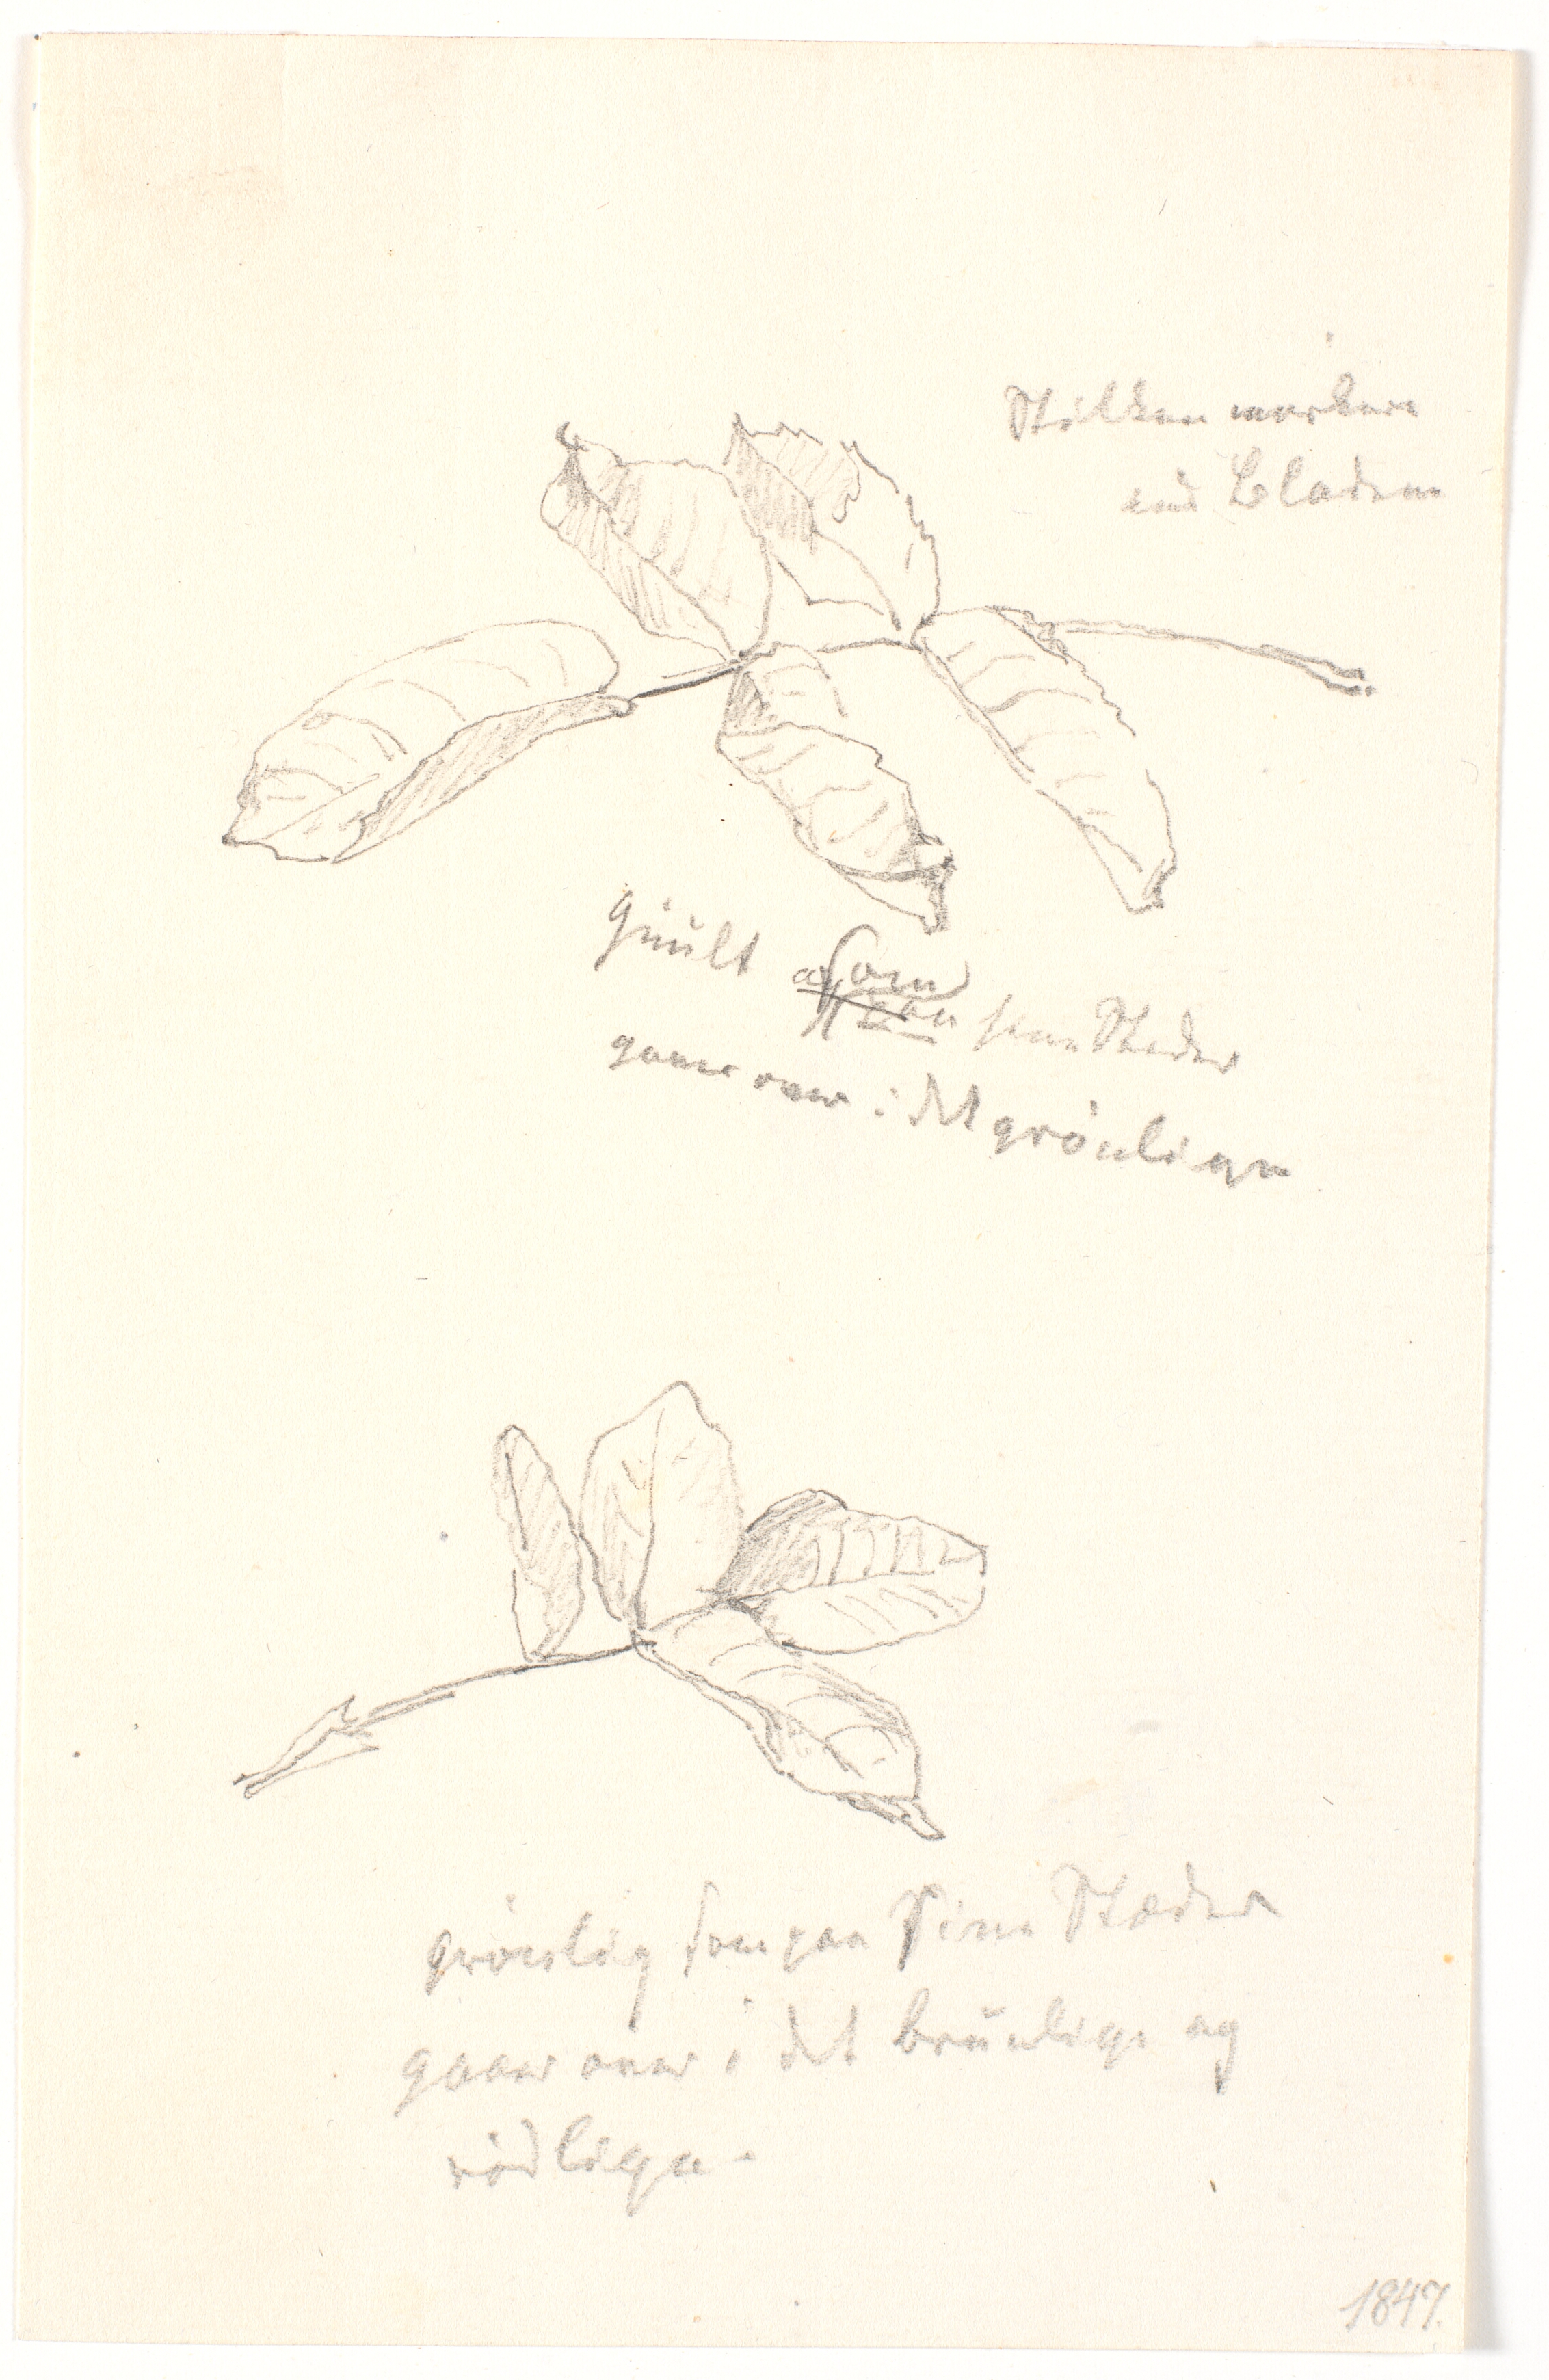 Stilken mörkere
end Bladene
guult som sine Steder
gaaer over i det grönlige
grönlig som paa Sine Stæder
gaaer over i det brunlige og
rödlige.
1847.